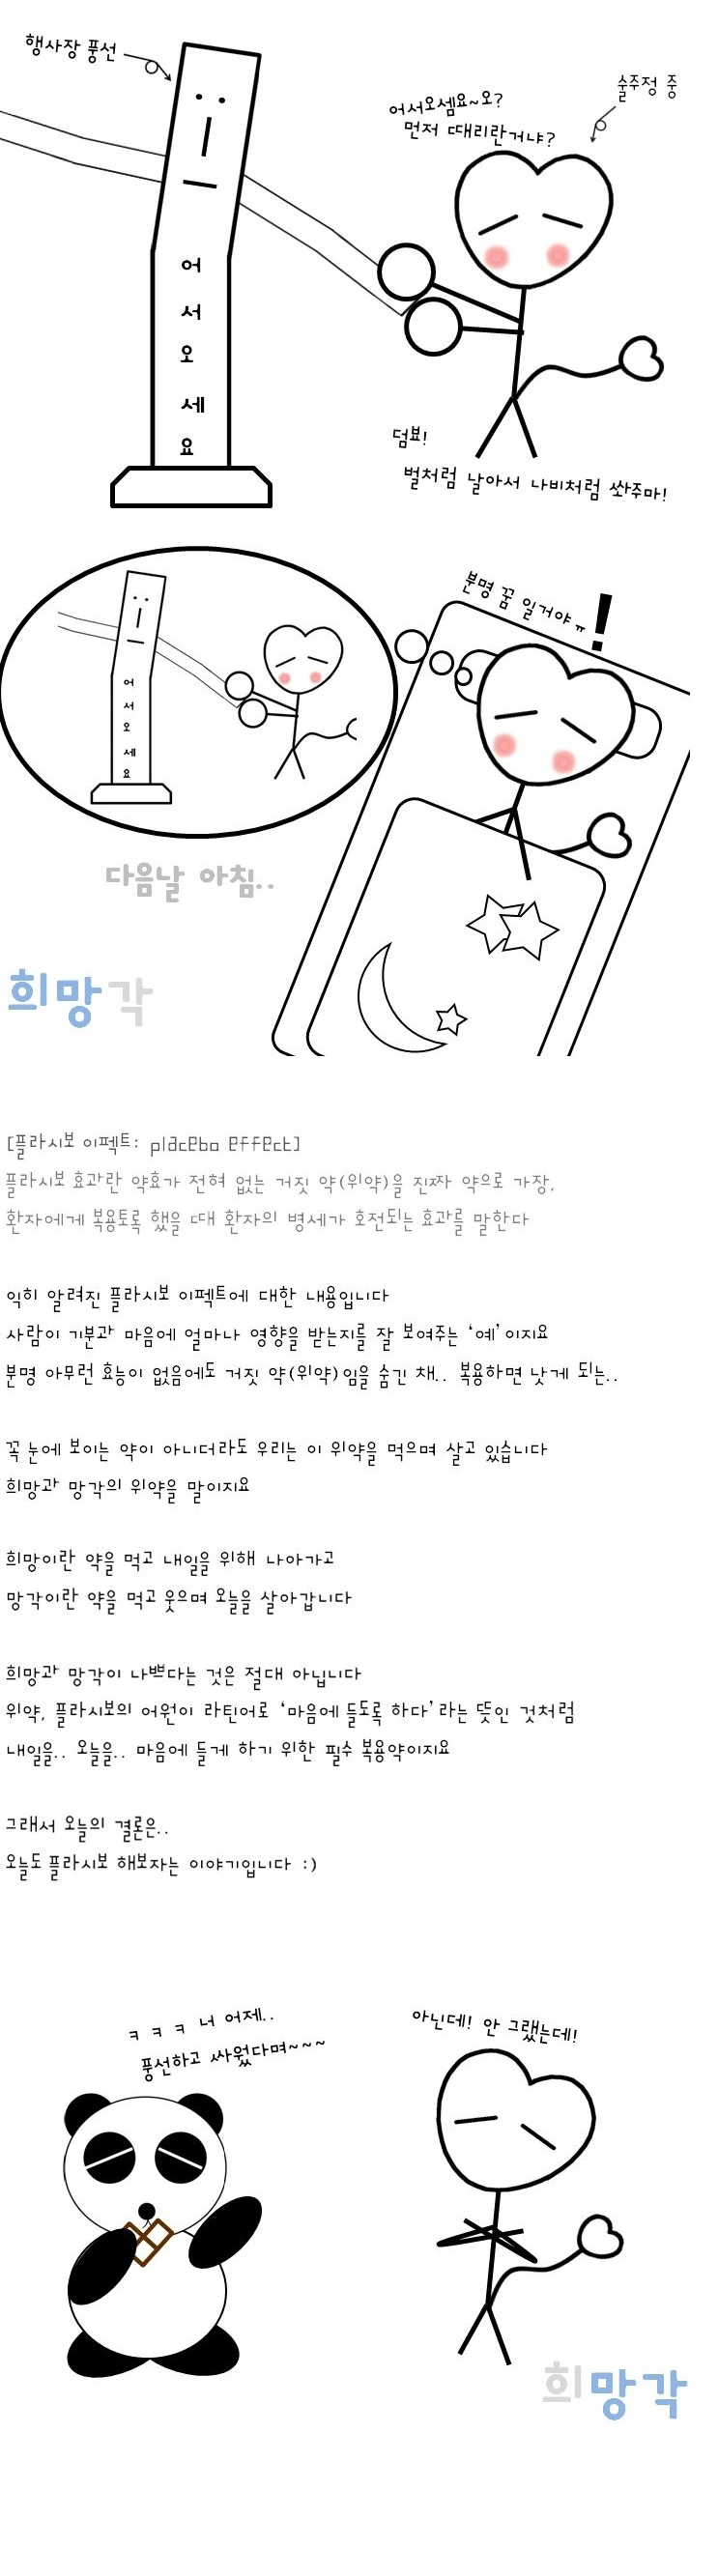 행사장 풍선
술주정 중
어서오셈요~오?
먼저 때리란거냐?
어
서
오
세
요
덤뵤!
벌처럼 날아서 나비처럼 쏴주마!
분명 꿈 일거야ㅠ!
어
서
오
세
요
다음날 아침..
희망각
[플라시보 이펙트: placebo effect]
플라시보 효과란 약효가 전혀 없는 거짓 약(위약)을 진짜 약으로 가장,
환자에게 복용토록 했을 때 환자의 병세가 호전되는 효과를 말한다
익히 알려진 플라시보 이펙트에 대한 내용입니다
사람이 기분과 마음에 얼마나 영향을 받는지를 잘 보여주는 '예'이지요
분명 아무런 효능이 없음에도 거짓 약(위약)임을 숨긴 채.. 복용하면 낫게 되는..
꼭 눈에 보이는 약이 아니더라도 우리는 이 위약을 먹으며 살고 있습니다
희망과 망각의 위약을 말이지요
희망이란 약을 먹고 내일을 위해 나아가고
망각이란 약을 먹고 웃으며 오늘을 살아갑니다
희망과 망각이 나쁘다는 것은 절대 아닙니다
위약, 플라시보의 어원이 라틴어로 '마음에 들도록 하다'라는 뜻인 것처럼
내일을.. 오늘을.. 마음에 들게 하기 위한 필수 복용약이지요
그래서 오늘의 결론은..
오늘도 플라시보 해보자는 이야기입니다 :)
ㅋ ㅋ ㅋ 너 어제..
풍선하고 싸웠다며~~~
아닌데! 안 그랬는데!
희망각